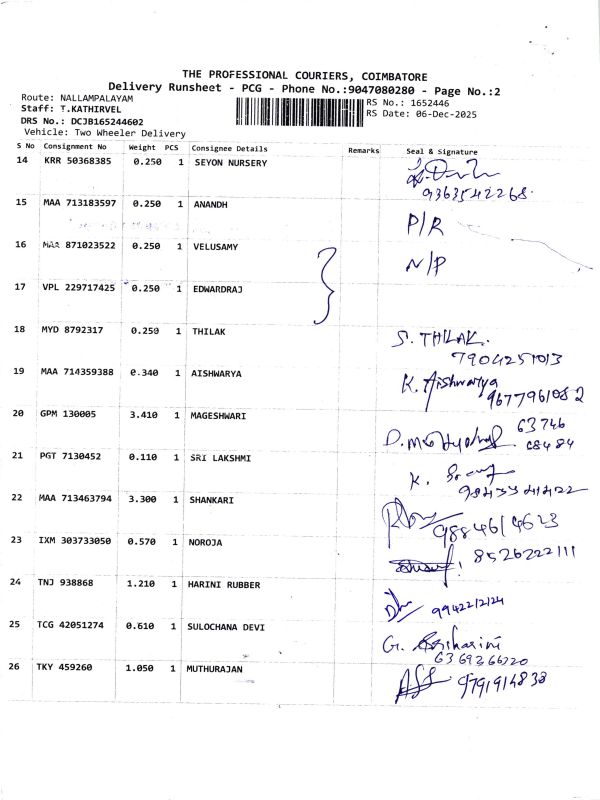 THE PROFESSIONAL COURIERS, COIMBATORE
Delivery Runsheet - PCG - Phone No.:9047080280 - Page No.:2
Route: NALLAMPALAYAM
Staff: T.KATHIRVEL
DRS No.: DCJB165244602
Vehicle: Two Wheeler Delivery
RS No.: 1652446
RS Date: 06-Dec-2025
S No Consignment No Weight PCS Consignee Details Remarks Seal & Signature
14 KRR 50368385 0.250 1 SEYON NURSERY
9363542268.
15 MAA 713183597 0.250 1 ANANDH P/R
16 MAA 871023522 0.250 1 VELUSAMY N/P
17 VPL 229717425 0.250 1 EDWARDRAJ
18 MYD 8792317 0.250 1 THILAK S. THILAK.
7904251013
19 MAA 714359388 0.340 1 AISHWARYA K. Aishwarya
9677961082
20 GPM 130005 3.410 1 MAGESHWARI 63746
68484
21 PGT 7130452 0.110 1 SRI LAKSHMI K.
22 MAA 713463794 3.300 1 SHANKARI 9884614623
23 IXM 303733050 0.570 1 NOROJA 8526222111
24 TNJ 938868 1.210 1 HARINI RUBBER 9942212124
25 TCG 42051274 0.610 1 SULOCHANA DEVI G. Sriharini
6369366320
26 TKY 459260 1.050 1 MUTHURAJAN 9791914838